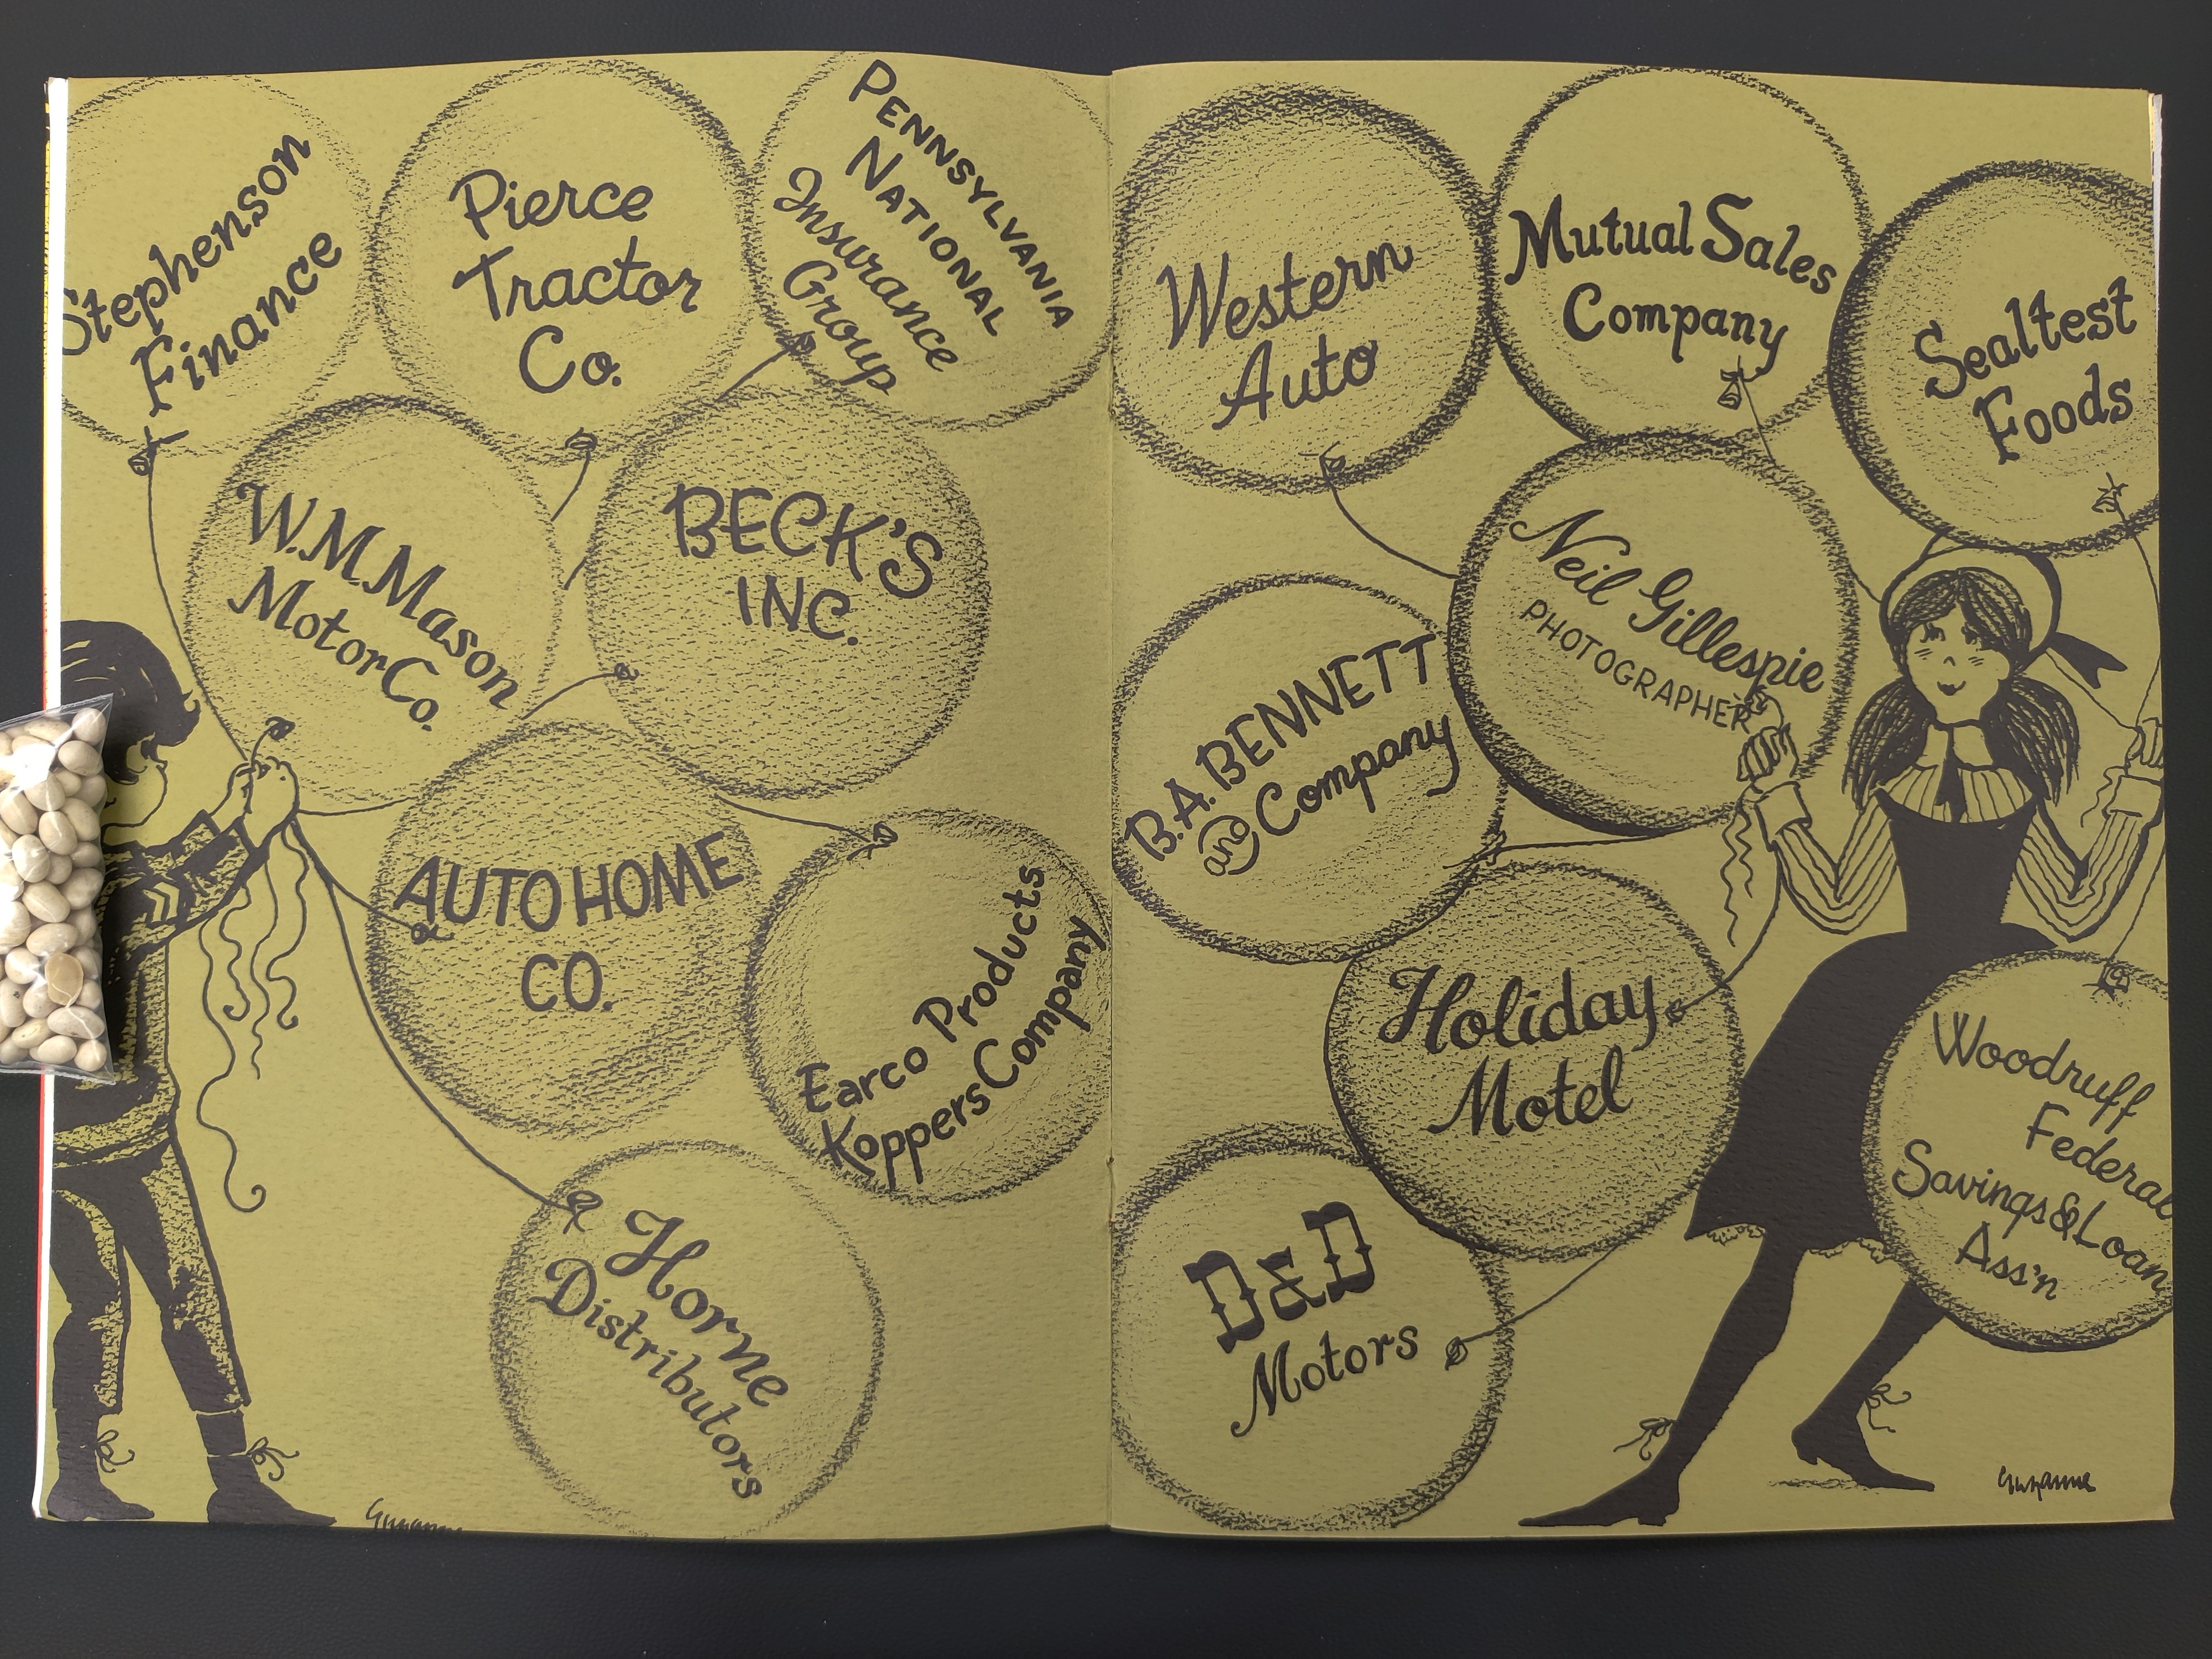 Stephenson
Finance
Pierce
Tractor
Co.
PENNSYLVANIA
NATIONAL
Insurance
Group
W.M.Mason
Motor Co.
BECK'S
INC.
AUTO HOME
CO.
Earco Products
Koppers Company
Horne
Distributors
Suzanne
Western
Auto
Mutual Sales
Company
Sealtest
Foods
Neil Gillespie
PHOTOGRAPHER
B.A. BENNETT
and Company
Holiday
Motel
D&D
Motors
Woodruff
Federal
Savings & Loan
Ass'n
Suzanne